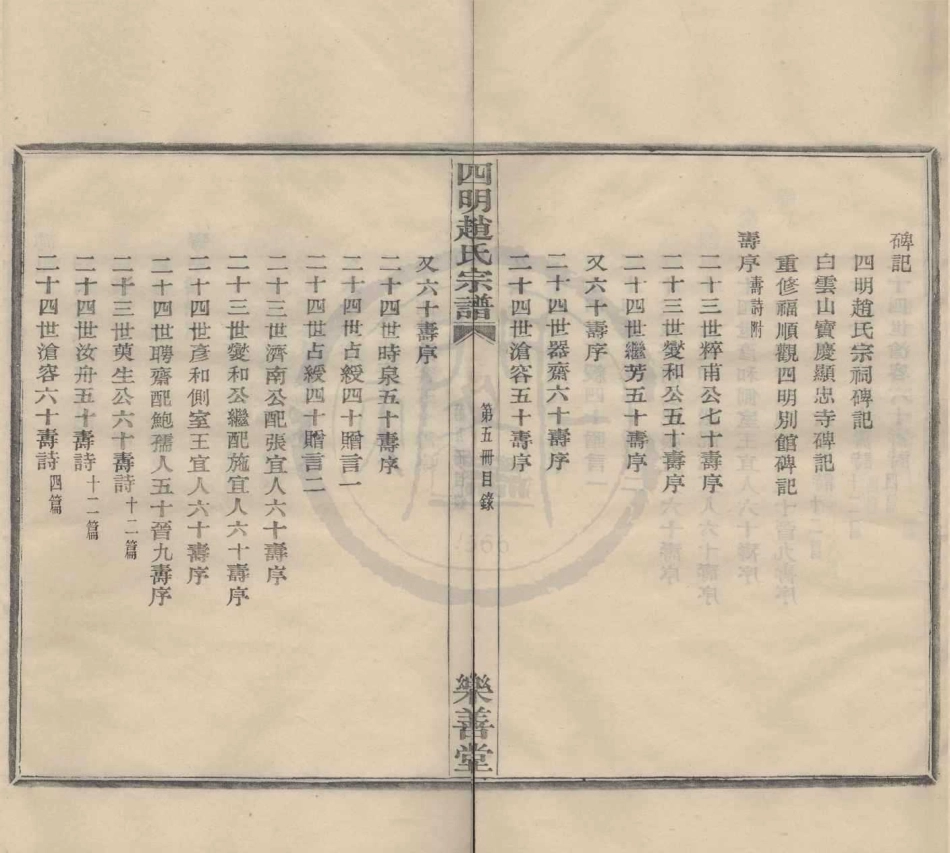 碑記
四明趙氏宗祠碑記
白雲山寳慶顯忠寺碑記
重修福順觀四明別館碑記
壽序 壽詩附
二十三世粹甫公七十壽序
二十三世燮和公五十壽序
二十四世繼芳五十壽序
又六十壽序
二十四世器齋六十壽序
二十四世滄容五十壽序
四明趙氏宗譜
第五冊目錄
樂善堂
二十四世時泉五十壽序
又六十壽序
二十四世占綬四十贈言一
二十四世占綬四十贈言二
二十三世濟南公配張宜人六十壽序
二十三世燮和公繼配施宜人六十壽序
二十四世彥和側室王宜人六十壽序
二十四世聘齋配鮑孺人五十晉九壽序
二十三世萸生公六十壽詩 十二篇
二十四世汝舟五十壽詩 十二篇
二十四世滄容六十壽詩 四篇